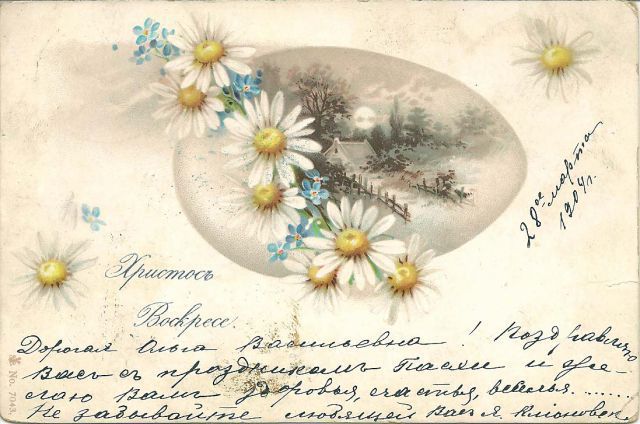 28ое марта
1904 г.
Христосъ
Воскресе.
Дорогая Ольга Васильевна! Поздравляю
Васъ съ праздникомъ Пасхи и же-
лаю Вамъ здоровья, счастья, веселья......
Не забывайте любящей Васъ
No. 7043.